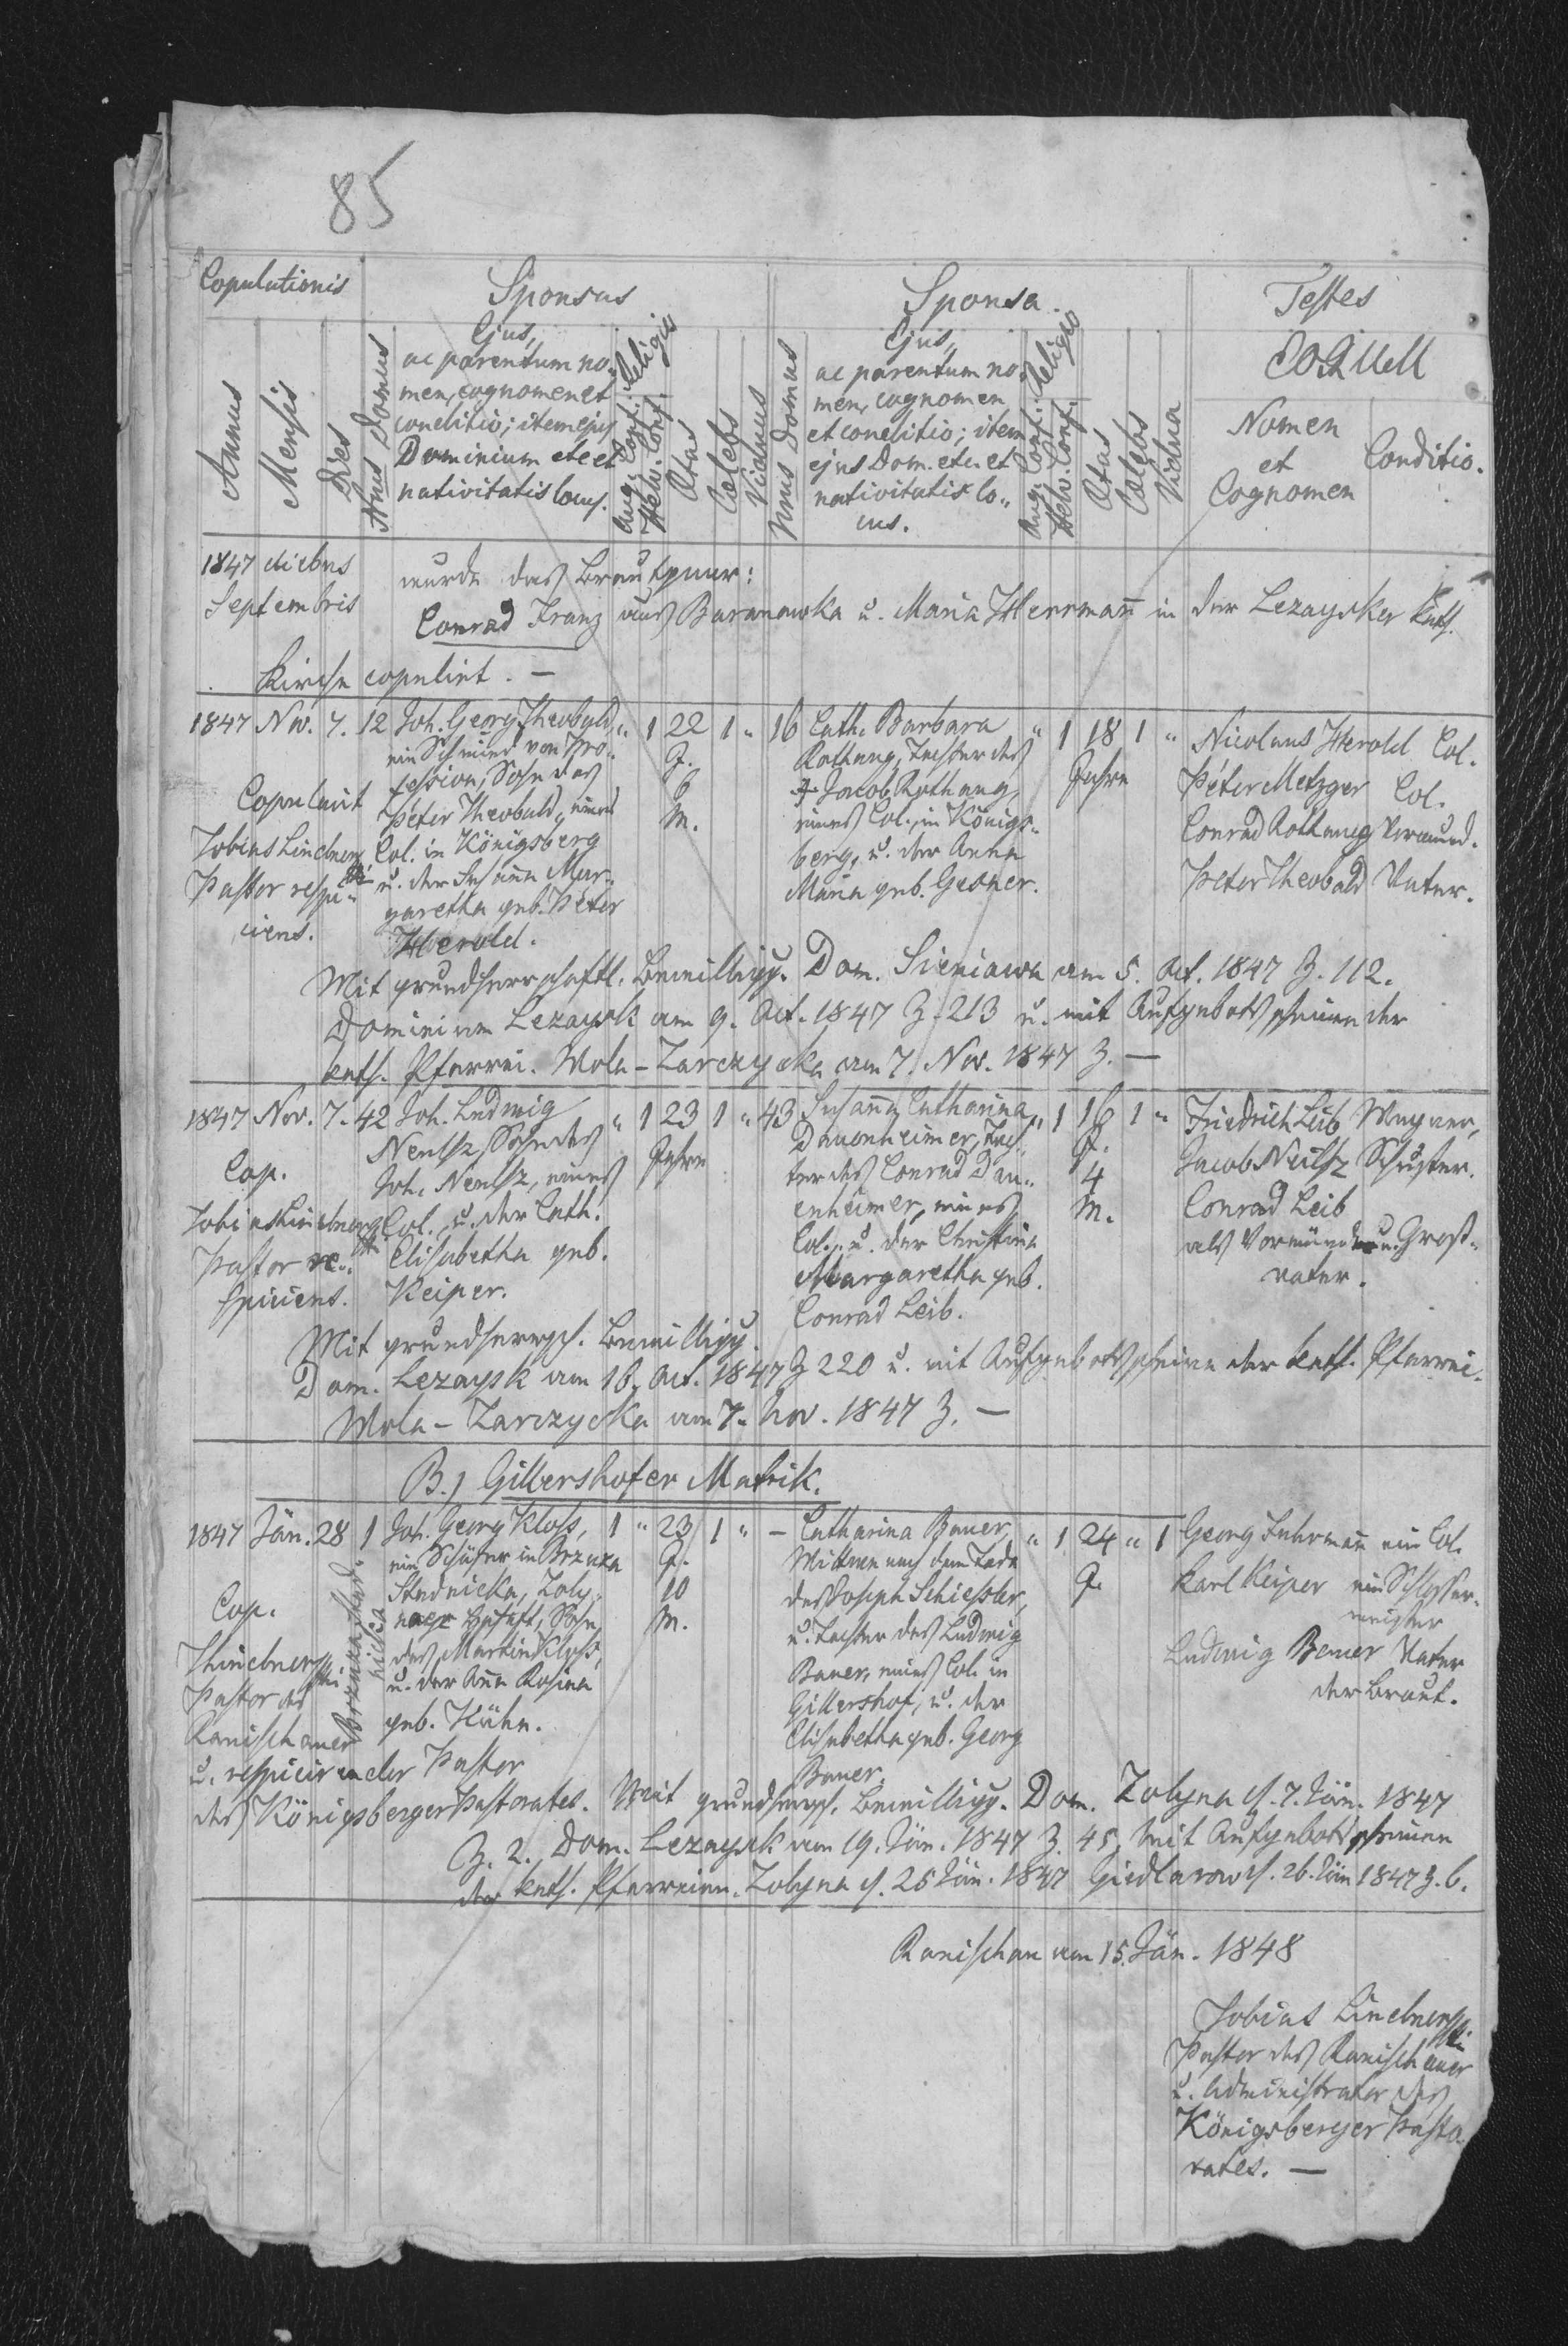 85
Copulationis
Sponsus
Sponsa.
Testes
Annus
Mensis
Dies
Nrus Domus
Ejus,
ac parentum no-
men, cognomen et
conditio; item ejus
Dominium etc et
nativitatis locus.
Religio
Aug. Conf.
Helv. Conf.
Ætas
Cælebs
Viduus
Nrus Domus
Ejus,
ac parentum no-
men, cognomen
et conditio; item
ejus Dom. etc. et
nativitatis lo-
cus.
Religio
Aug. Conf.
Helv. Conf.
Ætas
Cælebs
Vidua
Nomen
et
Cognomen
Conditio.
1847 diebus
Septembris
wurde das Brautpaar:
Conrad Franz aus Baranowka u. Maria Herrmañ in der Lezaysker kath.
Kirche copulirt. —
1847 Nov. 7. 12 Joh. Georg Theobald, " 1 22 1 " 16 Cath. Barbara " 1 18 1 " Nicolaus Herold Col.
ein Schmied von Pro-
fession, Sohn des
Peter Theobald, eines
Col. in Königsberg
u. der Susaña Mar-
garetha geb. Peter
Herold.
J.
6
M.
Rothaug, Tochter des
† Jacob Rothaug,
eines Col. in Königs-
berg, u. der Anna
Maria geb. Gesner.
Jahre
Peter Metzger Col.
Conrad Rothaug Vormund.
Peter Theobald Vater.
Copulavit
Tobias Lindner
Pastor respi-
ciens.
Mit grundherrschaftl. Bewilligg. Dom. Sieniawa am 5. Oct. 1847 Z. 112.
Dominium Lezaysk am 9. Oct. 1847 Z. 213 u. mit Aufgebotsscheinen der
kath. Pfarrei. Wola-Zarczycka am 7. Nov. 1847 Z. —
1847 Nov. 7. 42 Joh. Ludwig " 1 23 1 " 43 Susaña Catharina " 1 16 1 " Friedrich Leib Wagner,
Sohn des
eines
Col., u. der Cath.
Elisabetha geb.
Keiper.
Jahre
Dauenheimer, Toch-
ter des Conrad Dau-
enheimer, eines
Col., u. der Christina
Margaretha geb.
Conrad Leib.
J.
4
M.
Jacob Schuster.
Conrad Leib
als Vormünder u. Groß-
vater.
Cop.
Tobias Lindner
Pastor re-
spiciens.
Mit grundherrsch. Bewilligg.
Dom. Lezaysk am 16. Oct. 1847 Z 220 u. mit Aufgebotsscheine der kath. Pfarrei.
Wola-Zarczycka am 7. Nov. 1847 Z. —
B.) Gillershofer Matrik.
1847 Jän. 28 1 Joh. Georg Kloss, 1 " 23 1 " — Catharina Bauer, " 1 24 " 1 Georg Fuhrmañ ein Col.
Brzuza Stadnicka
ein Schäfer in Brzuza
Stadnicka, Zoly-
naer Herrschaft, Sohn
des Martin Kloss,
u. der Aña Rosina
geb. Kühn.
J.
10
M.
Wittwe nach dem Tode
des Joseph Schiessler,
u. Tochter des Ludwig
Bauer, eines Col. in
Gillershof, u. der
Elisabetha geb. Georg
Bauer.
J.
Karl Keiper ein Schlosser-
meister
Ludwig Bauer Vater
der Braut.
Cop.
T. Lindner
Pastor des
Ranischauer
u. respicirender Pastor
des Königsberger Pastorates. Mit grundherrsch. Bewilligg. Dom. Zolyna d. 7. Jän. 1847
Z. 2. Dom. Lezaysk am 19. Jän. 1847 Z. 45, mit Aufgebotsscheinen
der kath. Pfarreien. Zolyna d. 25 Jän. 1847 Giedlarow d. 26. Jän 1847 Z. 6.
Ranischau am 15. Jän. 1848
Tobias Lindner
Pastor des Ranischauer
u. Administrator des
Königsberger Pasto-
rates. —